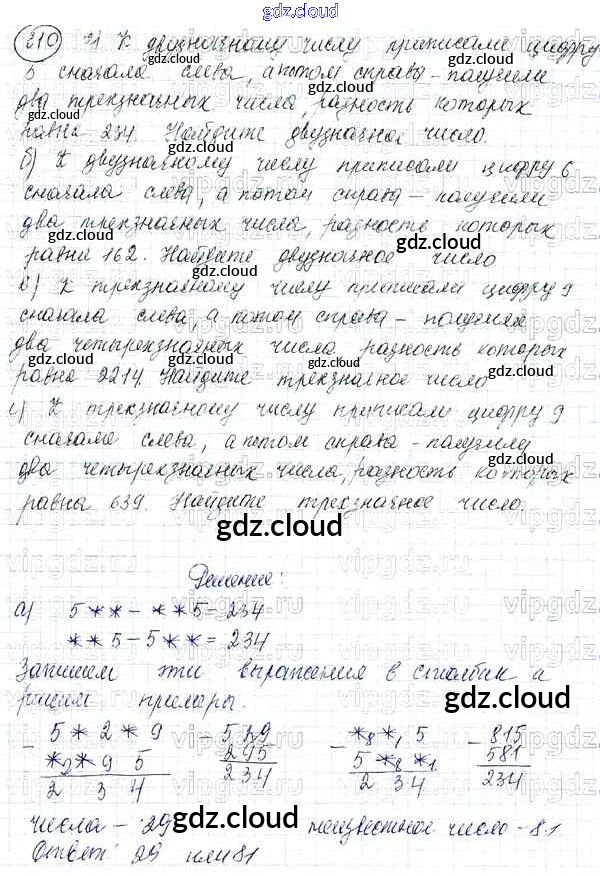 gdz.cloud
310 а) К двузначному числу приписали цифру
5 сначала слева, а потом справа – получили
два трехзначных числа, разность которых
равна 234. Найдите двузначное число.
б) К двузначному числу приписали цифру 6
сначала слева, а потом справа – получили
два трехзначных числа, разность которых
равна 162. Найдите двузначное число
в) К трехзначному числу приписали цифру 9
сначала слева, а потом справа – получили
два четырехзначных числа разность которых
равна 2214. Найдите трехзначное число
г) К трехзначному числу приписали цифру 9
сначала слева, а потом справа – получили
два четырехзначных числа, разность которых
равна 639. Найдите трехзначное число.
gdz.cloud
Решение:
а) 5** – **5 = 234
**5 – 5** = 234
Запишем эти выражения в столбик и
решим примеры.
5*2*9 529 *8*1 5 815
*2*9 5 295 5*8*1 581
2 3 4 234 2 3 4 234
числа – 29 неизвестное число – 81
Ответ 29 или 81